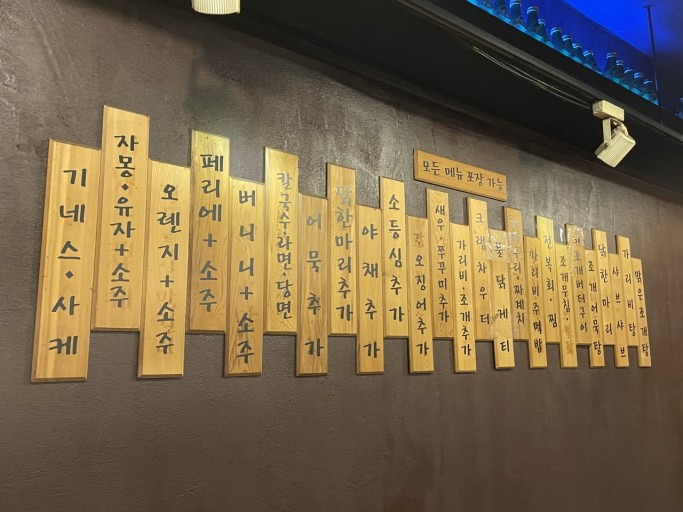 모든 메뉴 포장 가능
기네스·사케
자몽·유자+소주
오렌지+소주
페리에+소주
버니니+소주
칼국수·라면·당면
어묵추가
닭한마리추가
야채추가
소등심추가
오징어추가
새우·쭈꾸미추가
가리비·조개추가
크램차우더
불닭게티
가리비주먹밥
전복회·찜
조개무침
조개버터구이
조개어묵탕
닭한마리
샤브샤브
가리비탕
맑은조개탕